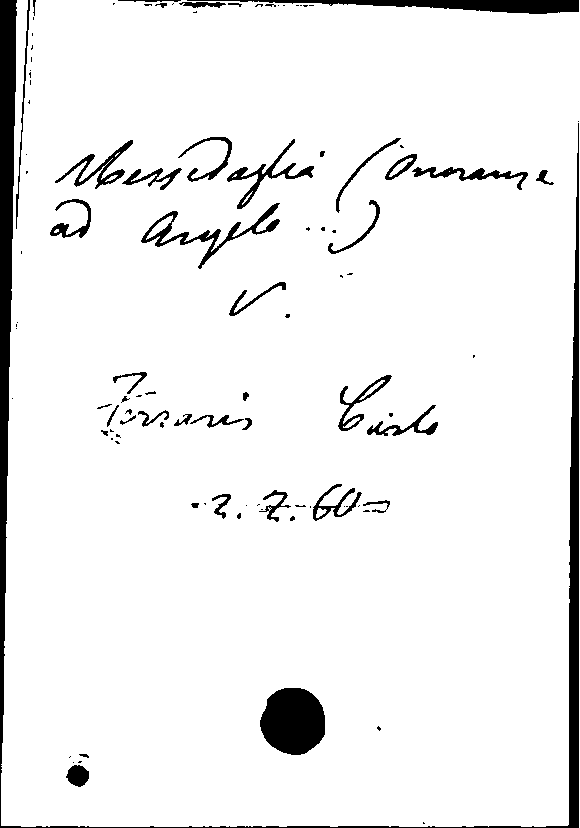 Messedaglia (Onoranze
ad Angelo ...)
V.
Ferraris Carlo
2. Z. 60